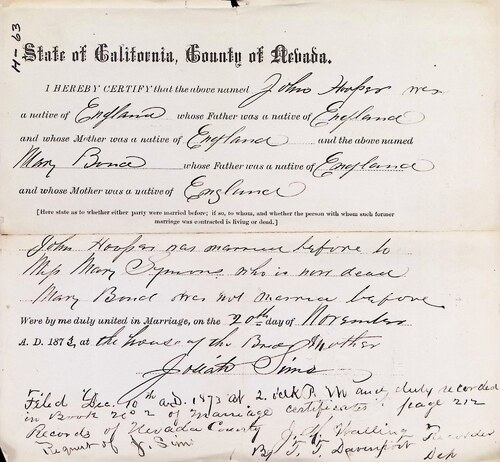 H-63
State of California, County of Nevada.
I HEREBY CERTIFY that the above named John Hooper was
a native of England whose Father was a native of England
and whose Mother was a native of England and the above named
Mary Bond whose Father was a native of England
and whose Mother was a native of England
[Here state as to whether either party were married before; if so, to whom, and whether the person with whom such former
marriage was contracted is living or dead.]
John Hooper was married before to
Miss Mary Symons who is now dead
Mary Bond was not married before
Were by me duly united in Marriage, on the 20th day of November
A. D. 1873, at the house of the Brides Mother
Josiah Sims
Filed Dec. 10th A.D. 1873 at 2 o'clk P. M and duly recorded
in Book No 2 of Marriage certificates page 212
Records of Nevada County
Request of J. Sims
Recorder
By T. T. Davenport Dep